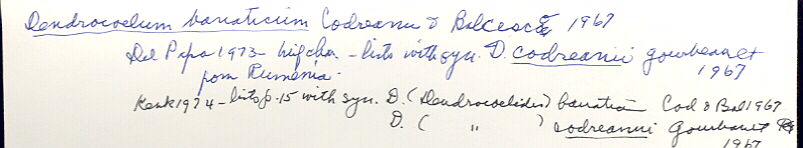 Dendrocoelum banaticum Codreanu & Balcesco 1967
Del Papa 1973 - - lists with syn. D. codreanui gourbault
1967
from Rumania.
Kenk 1974 - lists p. 15 with syn. D. (Dendrocoelides) banaticum Cod & Bal 1967
D. ( " ) codreanui Gourbault
1967